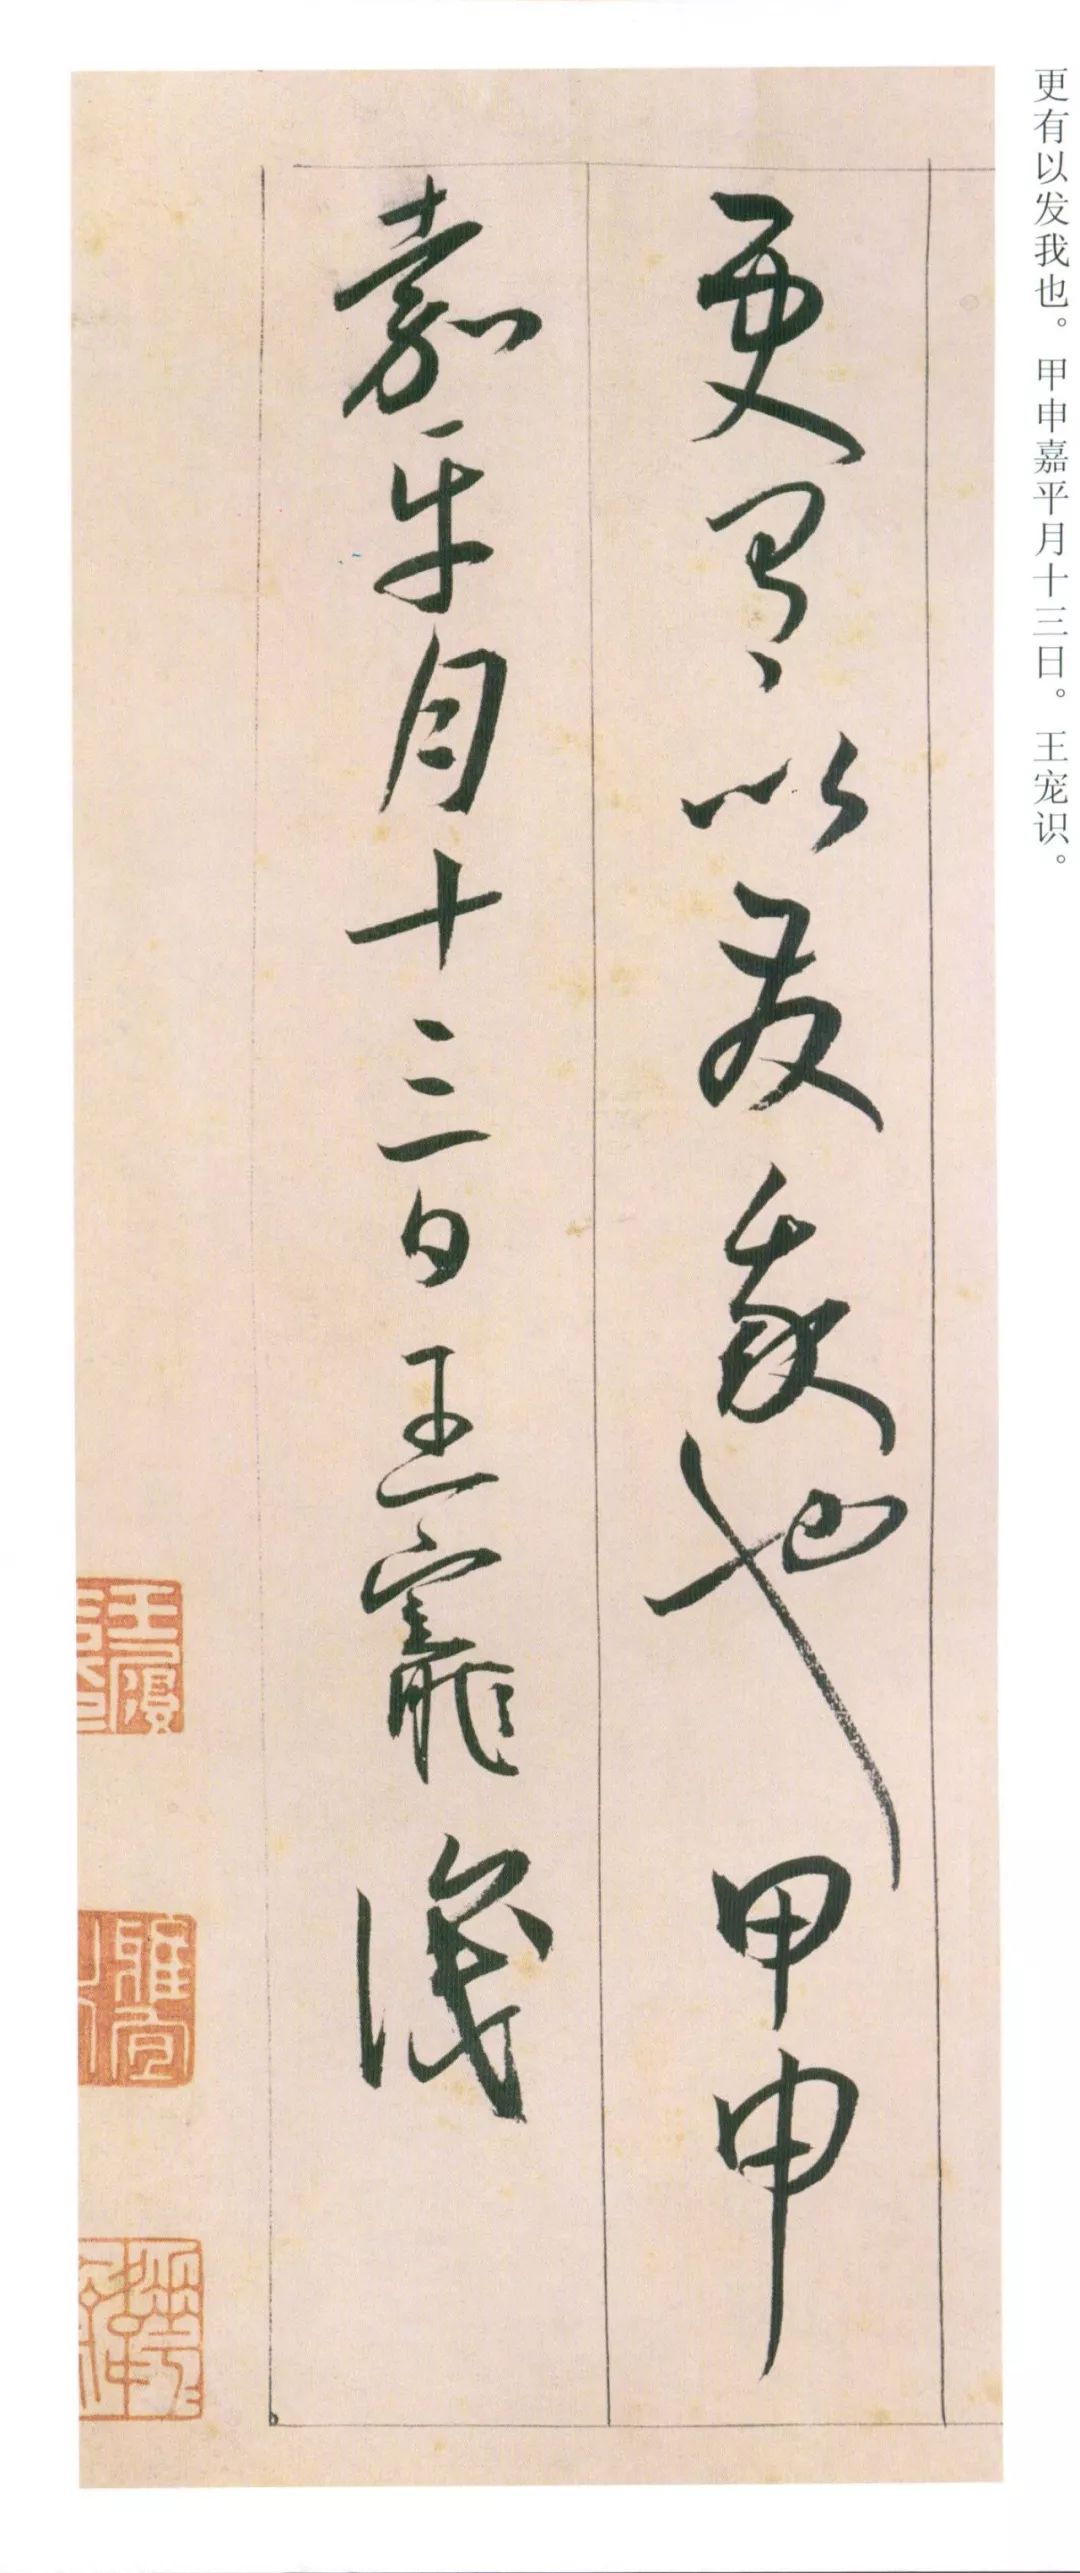 更有以发我也。甲申嘉平月十三日。王宠识。
更有以發我也甲申
嘉平月十三日王寵識
王履
雅宜